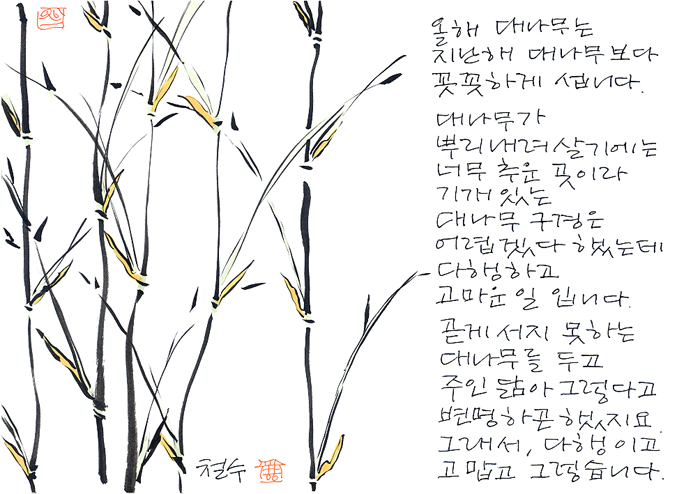 올해 대나무는
지난해 대나무보다
꼿꼿하게 섭니다.
대나무가
뿌리내려 살기에는
너무 추운 곳이라
기개 있는
대나무 구경은
어렵겠다 했는데
다행하고
고마운 일 입니다.
곧게 서지 못하는
대나무를 두고
주인 닮아 그렇다고
변명하곤 했었지요.
그래서, 다행이고
고맙고 그렇습니다.
철수